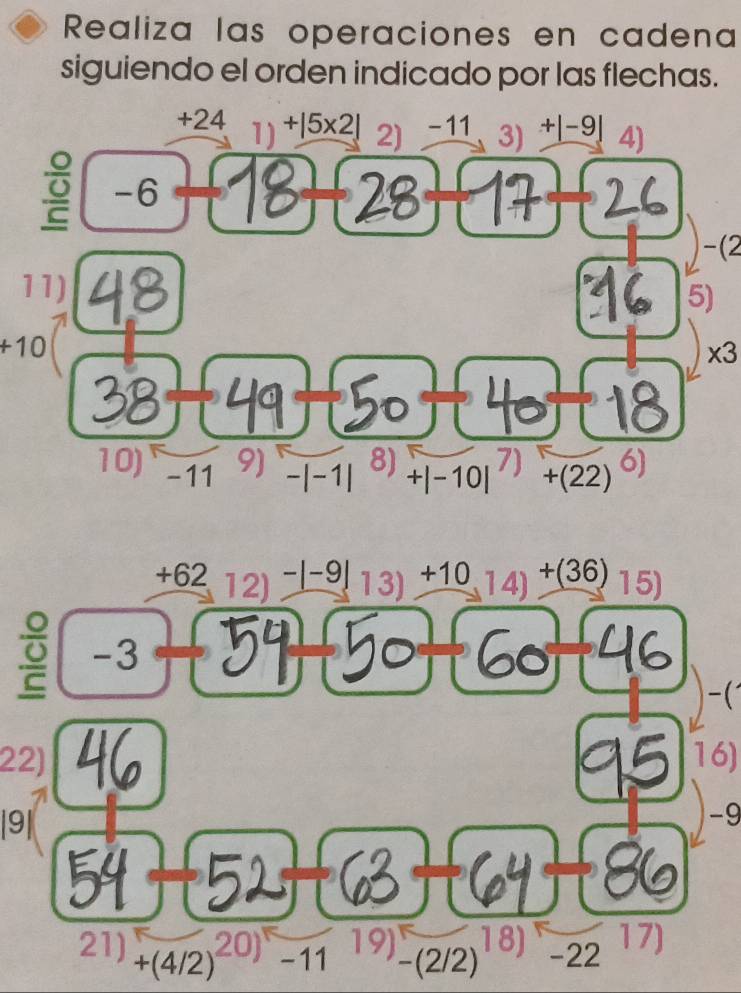 Realiza las operaciones en cadena
siguiendo el orden indicado por las flechas.
+24 1) +|5x2| 2) -11 3) +|-9| 4)
Inicio -6 18 28 17 26
-(2
11) 48 16 5)
+10 x3
38 49 50 40 18
10) -11 9) -|-1| 8) +|-10| 7) +(22) 6)
+62 12) -|-9| 13) +10 14) +(36) 15)
Inicio -3 59 50 60 46
-(
22) 46 95 16)
|9| -9
54 52 63 64 86
21) +(4/2) 20) -11 19) -(2/2) 18) -22 17)